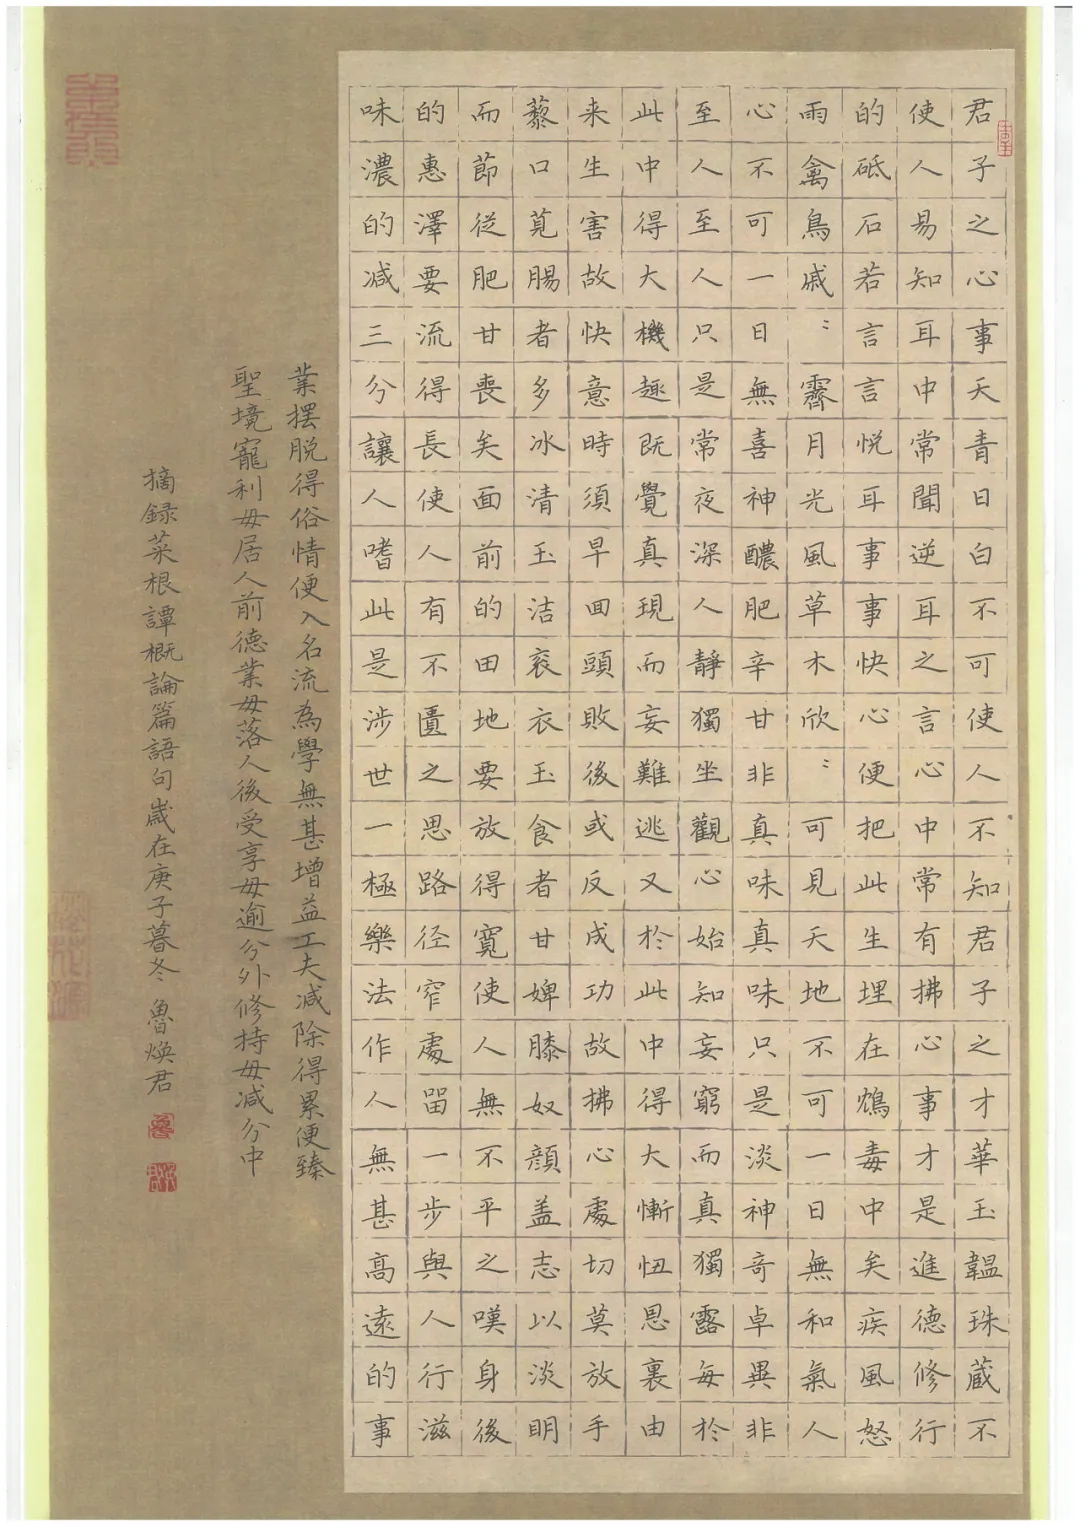 君子之心事天青日白不可使人不知君子之才華玉韞珠蔵不
使人易知耳中常聞逆耳之言心中常有拂心事才是進德修行
的砥石若言言悦耳事事快心便把此生埋在鴆毒中矣疾風怒
雨禽鳥戚〻霽月光風草木欣〻可見天地不可一日無和氣人
心不可一日無喜神醲肥辛甘非真味真味只是淡神奇卓異非
至人至人只是常夜深人靜獨坐觀心始知妄窮而真獨露每於
此中得大機趣既覺真現而妄難逃又於此中得大慚忸恩裏由
来生害故快意時須早回頭敗後或反成功故拂心處切莫放手
藜口莧腸者多冰清玉洁袞衣玉食者甘婢膝奴顔盖志以淡明
而節從肥甘喪矣面前的田地要放得寬使人無不平之嘆身後
的惠澤要流得長使人有不匱之思路径窄處留一步與人行滋
味濃的减三分讓人嗜此是涉世一極樂法作人無甚高遠的事
業擺脱得俗情便入名流為學無甚增益工夫减除得累便臻
聖境寵利毋居人前德業毋落人後受享毋逾分外修持毋减分中
摘録菜根譚概論篇語句歲在庚子暮冬 魯焕君